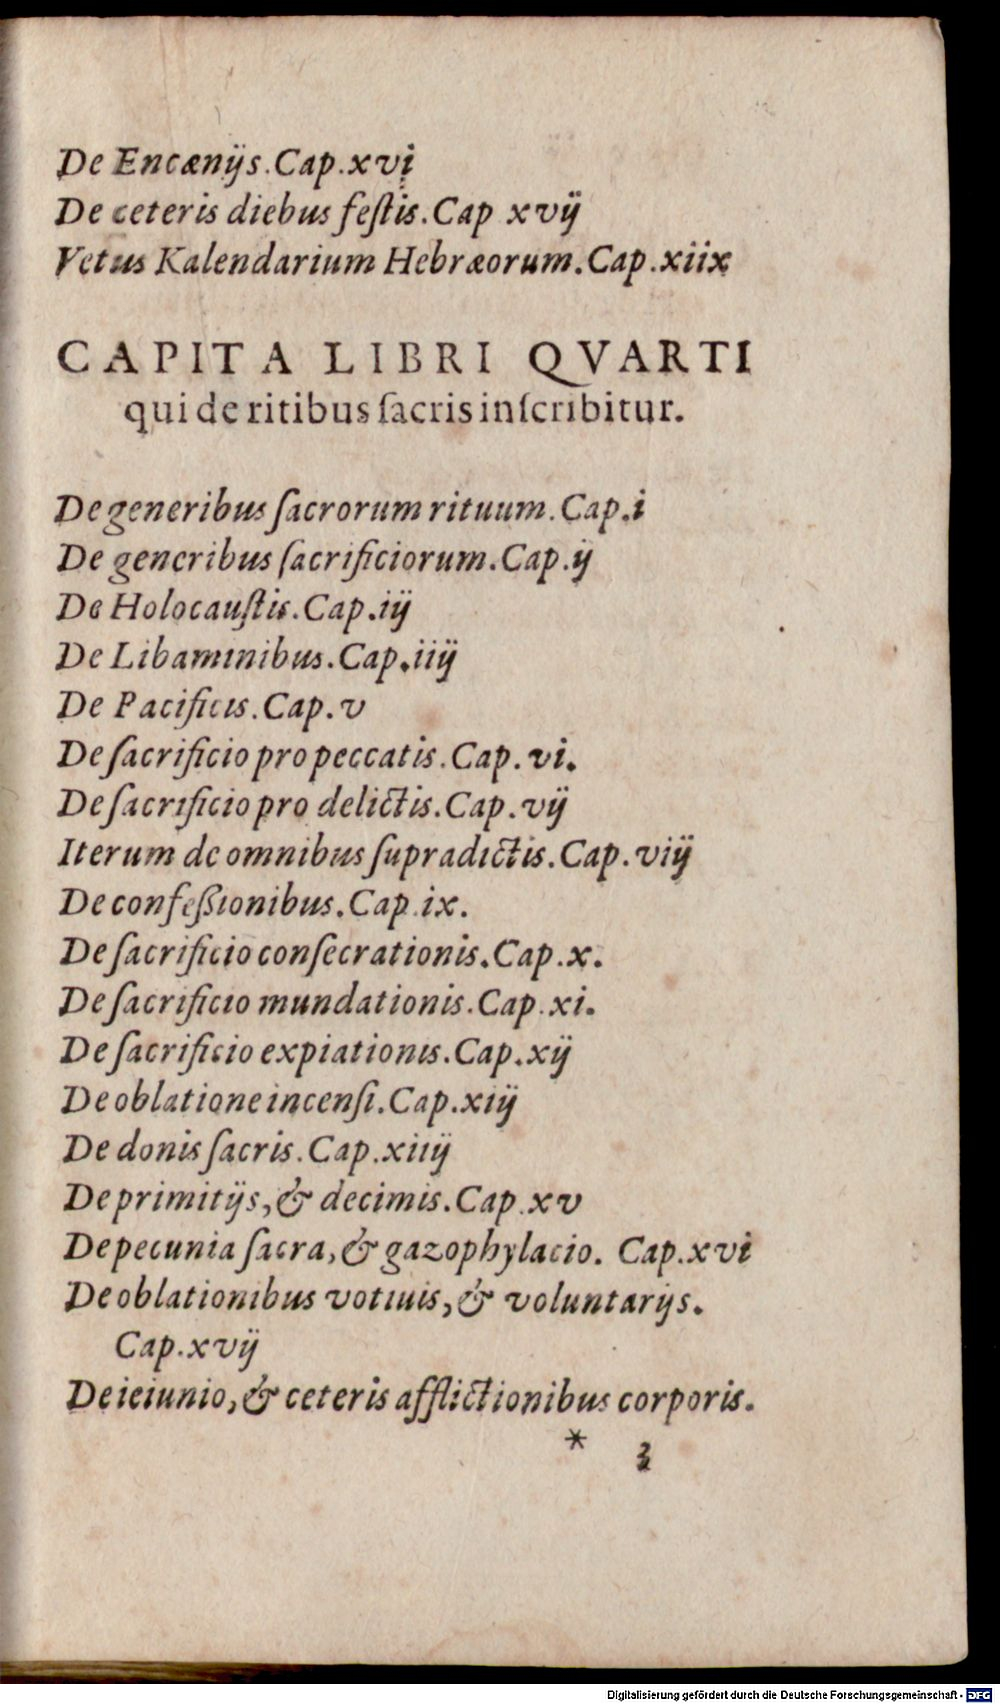 De Encænijs. Cap. xvi
De ceteris diebus feſtis. Cap xvij
Vetus Kalendarium Hebræorum. Cap. xiix
CAPITA LIBRI QVARTI
qui de ritibus ſacris inſcribitur.
De generibus ſacrorum rituum. Cap. i
De generibus ſacrificiorum. Cap. ij
De Holocauſtis. Cap. iij
De Libaminibus. Cap. iiij
De Pacificis. Cap. v
De ſacrificio pro peccatis. Cap. vi.
De ſacrificio pro delictis. Cap. vij
Iterum de omnibus ſupradictis. Cap. viij
De confeßionibus. Cap. ix.
De ſacrificio conſecrationis. Cap. x.
De ſacrificio mundationis. Cap. xi.
De ſacrificio expiationis. Cap. xij
De oblatione incenſi. Cap. xiij
De donis ſacris. Cap. xiiij
De primitijs, & decimis. Cap. xv
De pecunia ſacra, & gazophylacio. Cap. xvi
De oblationibus votiuis, & voluntarijs.
Cap. xvij
De ieiunio, & ceteris afflictionibus corporis.
* 3
Digitalisierung gefördert durch die Deutsche Forschungsgemeinschaft - DFG